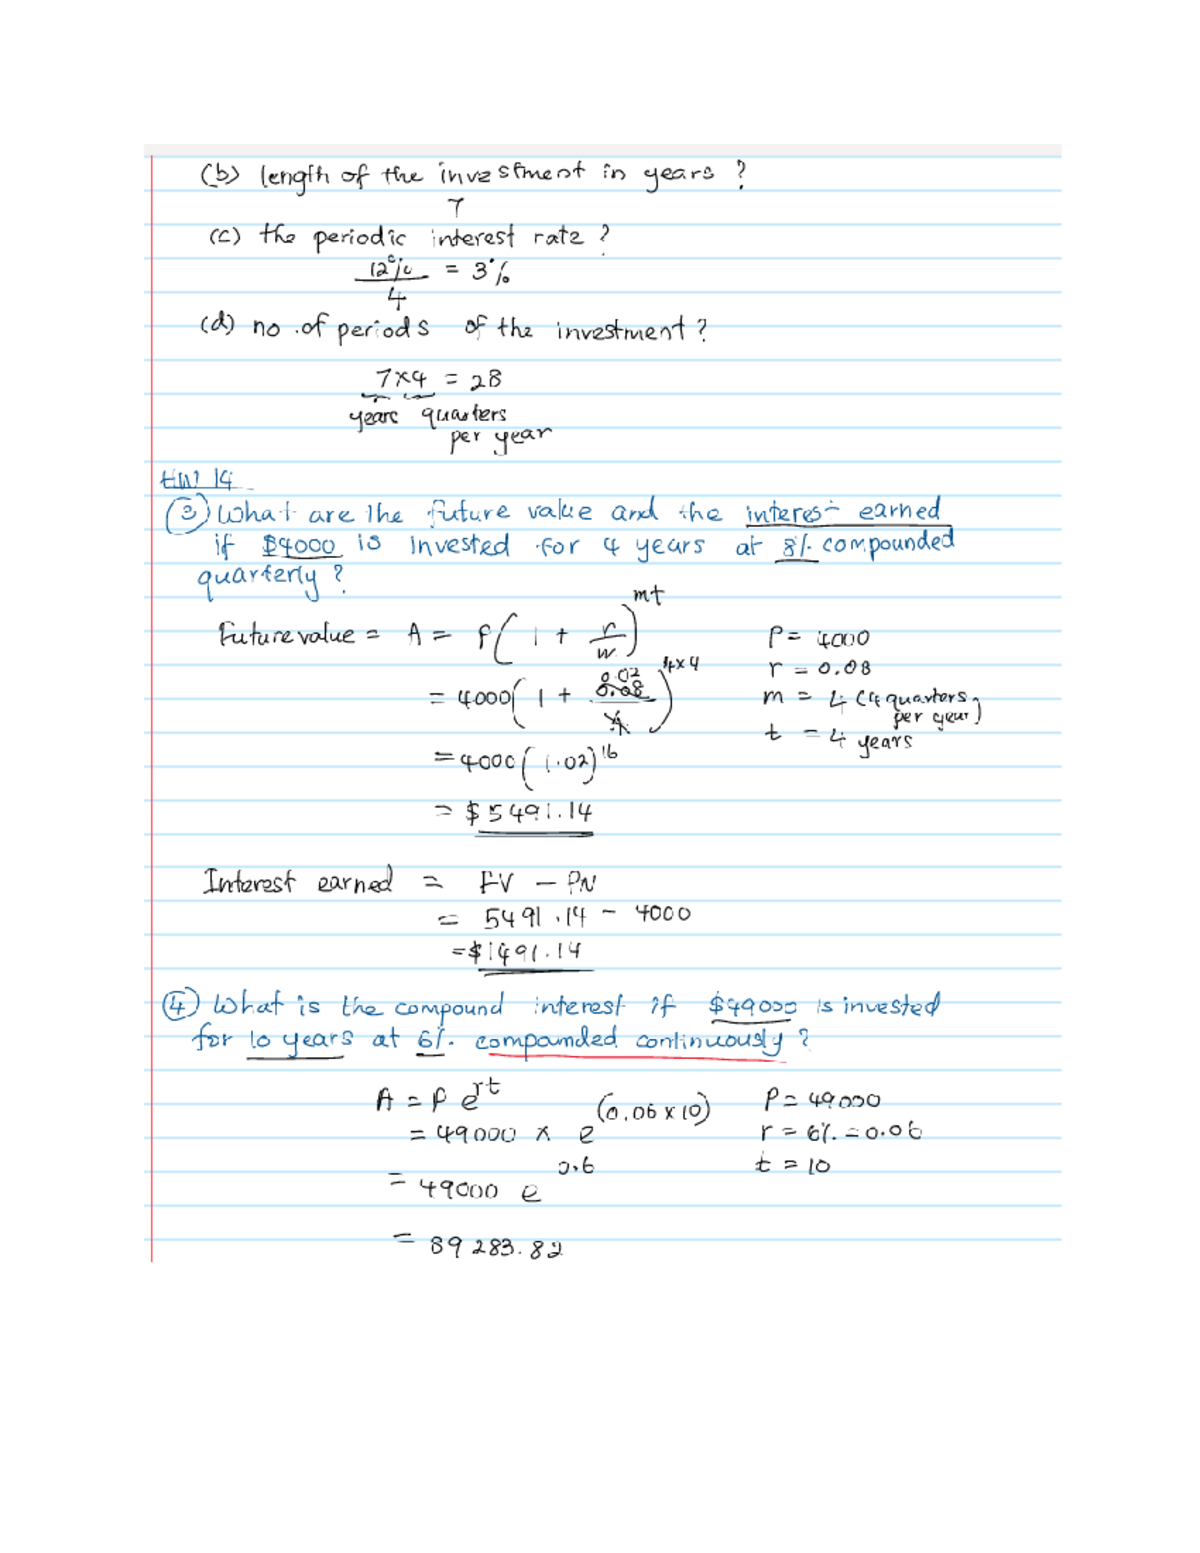 (b) length of the investment in years ?
7
(c) the periodic interest rate ?
12% / 4 = 3%
(d) no. of periods of the investment ?
7×4 = 28
years quarters
per year
HW 14
③ What are the future value and the interest earned
if $4000 is invested for 4 years at 8% compounded
quarterly ?
Future value = A = P(1 + r/m)^mt
P = 4000
r = 0.08
= 4000(1 + 0.08/4)^4×4
0.02
m = 4 (4 quarters
per year)
t = 4 years
= 4000(1.02)^16
= $5491.14
Interest earned = FV - PV
= 5491.14 - 4000
= $1491.14
④ What is the compound interest if $49000 is invested
for 10 years at 6% compounded continuously ?
A = P e^rt
P = 49000
= 49000 × e^(0.06 × 10)
r = 6% = 0.06
t = 10
= 49000 e^0.6
= 89283.82